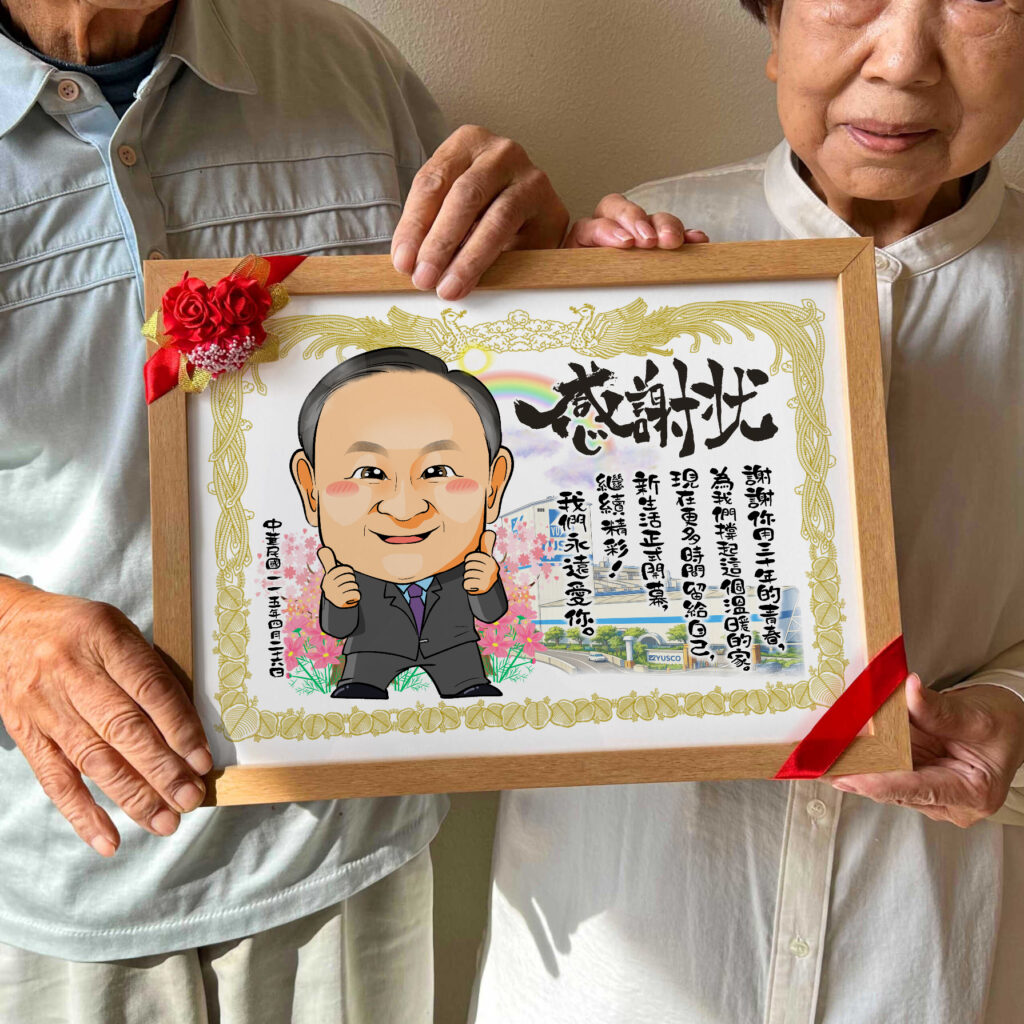 感謝狀
謝謝你用三十年的青春,
為我們撐起這個溫暖的家。
現在更多時間留給自己,
新生活正式開幕,
繼續精彩!
我們永遠愛你。
中華民國 一一五年四月二十六日
YUSCO